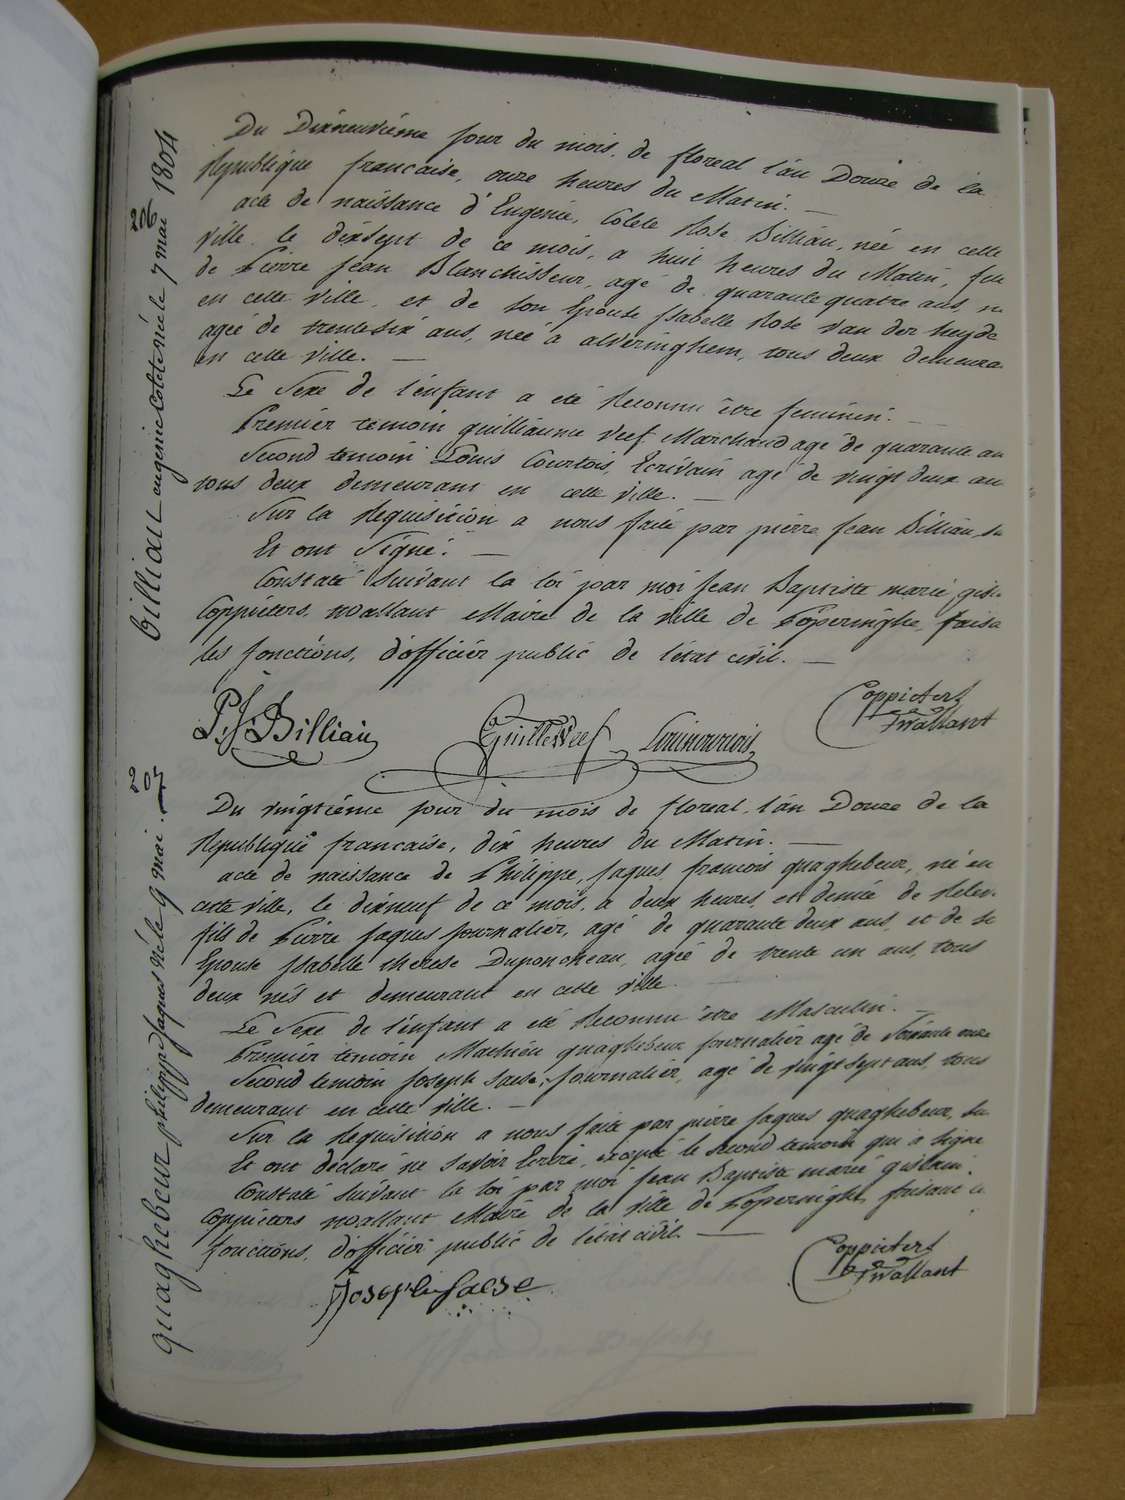 206
Billiau eugenie Colete née le 7 mai 1804
Du Dixneuvième jour du mois de floreal l'an Douze de la
Republique française, onze heures du Matin. —
acte de naissance d'Eugenie, Colete Rose Billiau, née en cette
ville le dixsept de ce mois, a huit heures du Matin, fille
de Pierre Jean Blanchisseur, agé de quarante quatre ans, né
en cette ville, et de son Epouse Isabelle Rose Van der heyde
agée de trentesix ans, née à alveringhem, tous deux demeura
en cette ville. —
Le Sexe de l'enfant a été Reconnu être feminin. —
Premier temoin guilliaume Veef Marchand agé de quarante an
Second temoin Louis Courtois, Ecrivain agé de vingt deux an
tous deux demeurant en cette ville. —
Sur la Requisition a nous faite par pierre Jean Billiau, su
Et ont Signé. —
Constaté Suivant la loi par moi Jean Baptiste marie gisl
Coppieters, Wallant Maire de la ville de Poperinghe, faisa
les fonctions, d'officier public de l'état civil. —
P.J. Billiau Guille Veef Louis Courtois Coppieters Wallant
207
quaghebeur philippe Jaques né le 9 mai
Du vingtième jour du mois de floreal l'an Douze de la
Republique française, dix heures du Matin. —
acte de naissance de Philippe, Jaques, françois quaghebeur, né en
cette ville, le dixneuf de ce mois, a deux heures et demie de Relev
fils de Pierre Jaques Journalier, agé de quarante deux ans, et de s
Epouse Isabelle therese Duponcheau, agée de trente un ans, tous
deux nés et demeurant en cette ville. —
Le Sexe de l'enfant a été Reconnu être Masculin. —
Premier temoin Mathieu quaghebeur journalier agé de Soixante onze
Second temoin Joseph Saese, Journalier, agé de vingt sept ans, tous
demeurant en cette ville. —
Sur la Requisition a nous faite par pierre Jaques quaghebeur, su
Et ont declaré ne Savoir Ecrire, excepté le Second temoin qui a Signé
Constaté Suivant la loi par moi Jean Baptiste marie gislain,
Coppieters Wallant Maire de la ville de Poperinghe, faisant l
fonctions, d'officier public de l'état civil. —
Joseph Saese Coppieters Wallant